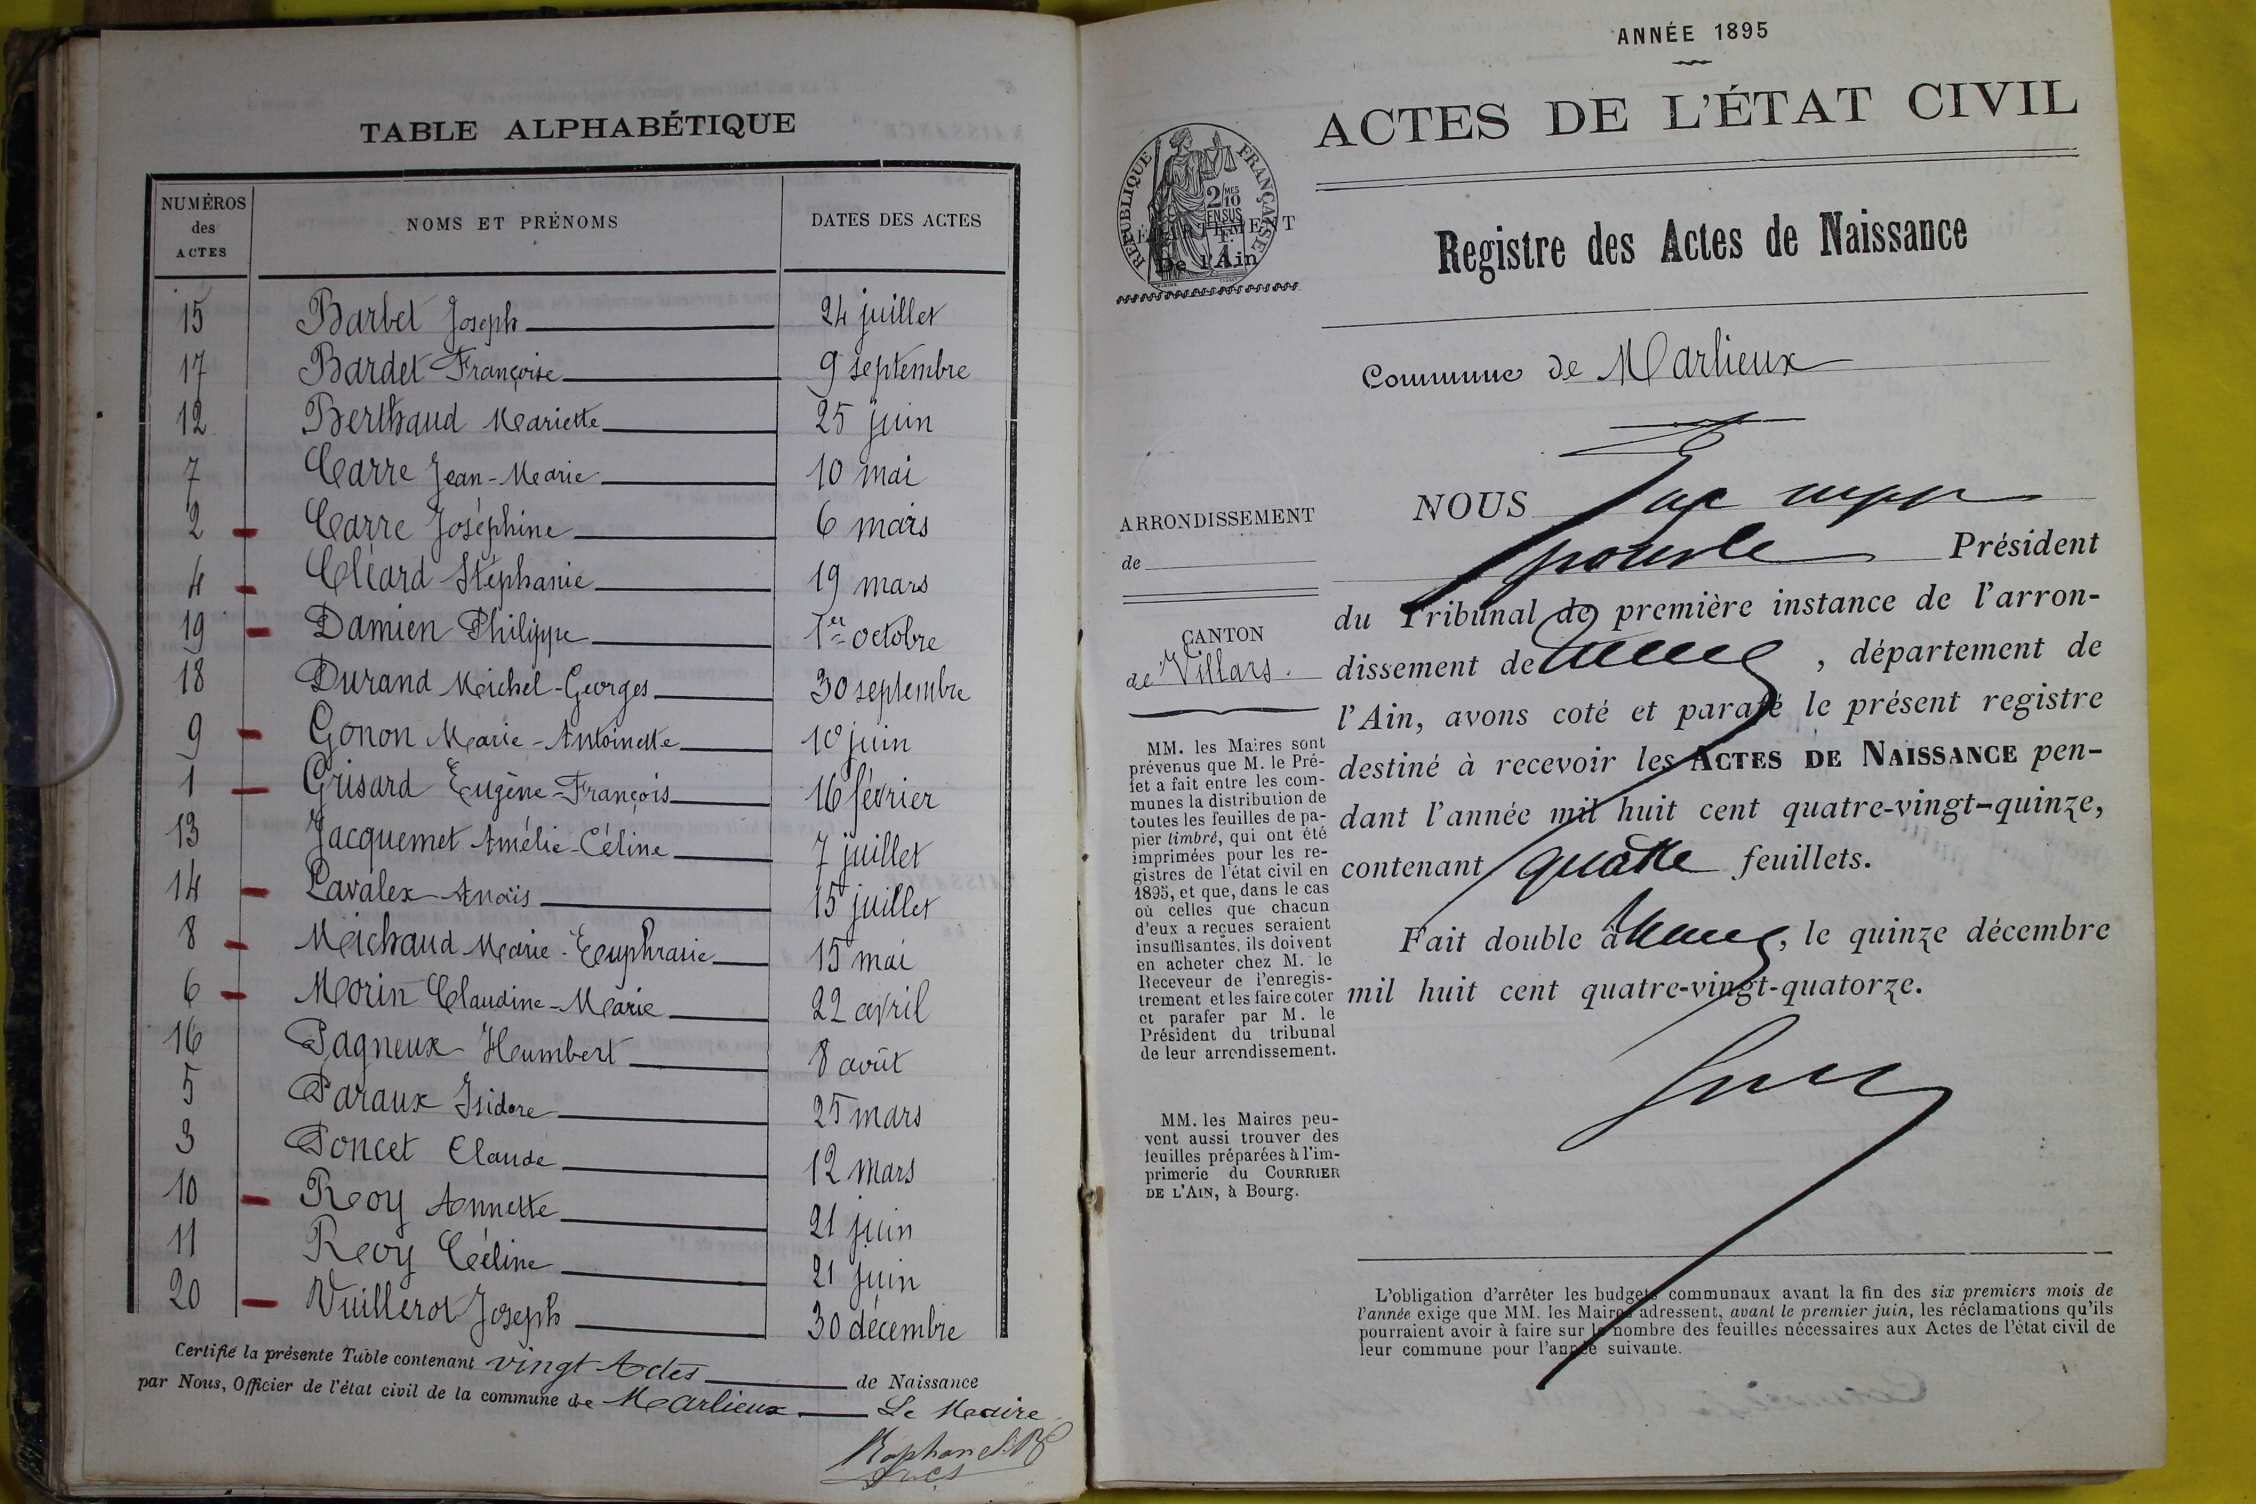 TABLE ALPHABÉTIQUE
NUMÉROS des ACTES NOMS ET PRÉNOMS DATES DES ACTES
15 Barbet Joseph 24 juillet
17 Bardet Françoise 9 septembre
12 Berthaud Mariette 25 juin
7 Carre Jean-Marie 10 mai
2 Carre Joséphine 6 mars
4 Cléard Stéphanie 19 mars
19 Damien Philippe 1er octobre
18 Durand Michel-Georges 30 septembre
9 Gonon Marie-Antoinette 10 juin
1 Grisard Eugène-François 16 février
13 Jacquemet Amélie-Céline 7 juillet
14 Lavalex Anaïs 15 juillet
8 Michaud Marie-Euphrasie 15 mai
6 Morin Claudine-Marie 22 avril
16 Pagneux Humbert 8 août
5 Paraux Isidore 25 mars
3 Poncet Claude 12 mars
10 Roy Annette 21 juin
11 Roy Céline 21 juin
20 Vuillerot Joseph 30 décembre
Certifié la présente Table contenant vingt Actes de Naissance
par Nous, Officier de l'état civil de la commune de Marlieux Le Maire
ANNÉE 1895
ACTES DE L'ÉTAT CIVIL
RÉPUBLIQUE FRANÇAISE
2/10 MES
EN SUS
DÉPARTEMENT
De l'Ain
Registre des Actes de Naissance
Commune de Marlieux
ARRONDISSEMENT
de
CANTON
de Villars.
MM. les Maires sont
prévenus que M. le Pré-
fet a fait entre les com-
munes la distribution de
toutes les feuilles de pa-
pier timbré, qui ont été
imprimées pour les re-
gistres de l'état civil en
1895, et que, dans le cas
où celles que chacun
d'eux a reçues seraient
insuffisantes, ils doivent
en acheter chez M. le
Receveur de l'enregis-
trement et les faire coter
et parafer par M. le
Président du tribunal
de leur arrondissement.
MM. les Maires peu-
vent aussi trouver des
feuilles préparées à l'im-
primerie du COURRIER
DE L'AIN, à Bourg.
NOUS
Président
du Tribunal de première instance de l'arron-
dissement de , département de
l'Ain, avons coté et parafé le présent registre
destiné à recevoir les ACTES DE NAISSANCE pen-
dant l'année mil huit cent quatre-vingt-quinze,
contenant quatre feuillets.
Fait double à , le quinze décembre
mil huit cent quatre-vingt-quatorze.
L'obligation d'arrêter les budgets communaux avant la fin des six premiers mois de
l'année exige que MM. les Maires adressent, avant le premier juin, les réclamations qu'ils
pourraient avoir à faire sur le nombre des feuilles nécessaires aux Actes de l'état civil de
leur commune pour l'année suivante.